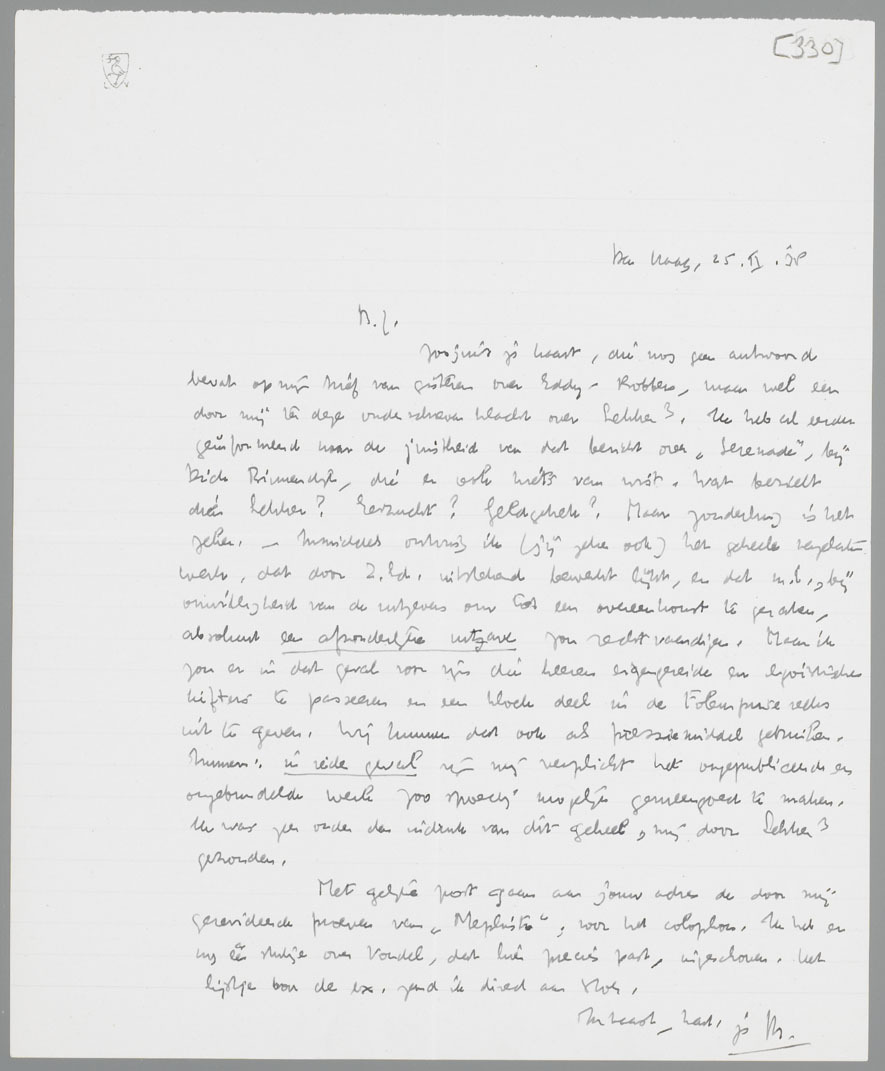 [330]
Den Haag, 25.II.38
B. J.
Zoojuist je kaart, die nog geen antwoord
bevat op mijn brief van gisteren over Eddy - Robbers, maar wel een
door mij ten deze onderschreven klacht over Lekker³. Ik heb al eerder
geïnformeerd naar de juistheid van dat bericht over „Serenade”, bij
Dick Binnendijk, die er ook niets van wist. Wat bezielt
dien Lekker? Eerzucht? Geldgebrek? Maar zonderling is het
zeker. — Inmiddels ontving ik (jij zeker ook) het geheele nagelaten
werk, dat door Z.Ed. uitstekend bewerkt lijkt, en dat m.i., bij
onwilligheid van de uitgevers om tot een overeenkomst te geraken,
absoluut een afzonderlijke uitgave zou rechtvaardigen. Maar ik
zou er in dat geval voor zijn die heeren eigengereide en egoistische
te passeeren en een kloek deel in de Folemprise reeks
uit te geven. Wij kunnen dat ook als pressiemiddel gebruiken.
Immers: in ieder geval zijn wij verplicht het ongepubliceerde en
ongebundelde werk zoo spoedig mogelijk gemeengoed te maken.
Ik was zeer onder den indruk van dit geheel, mij door Lekker³
gezonden.
Met gelijke post gaan aan jouw adres de door mij
gerevideerde proeven van „Mephisto”, voor het colophon. Ik heb er
nog één stukje over Vondel, dat hier precies past, ingeschoven. Het
lijstje voor de ex. zend ik direct aan Stols.
In haast, hart. je